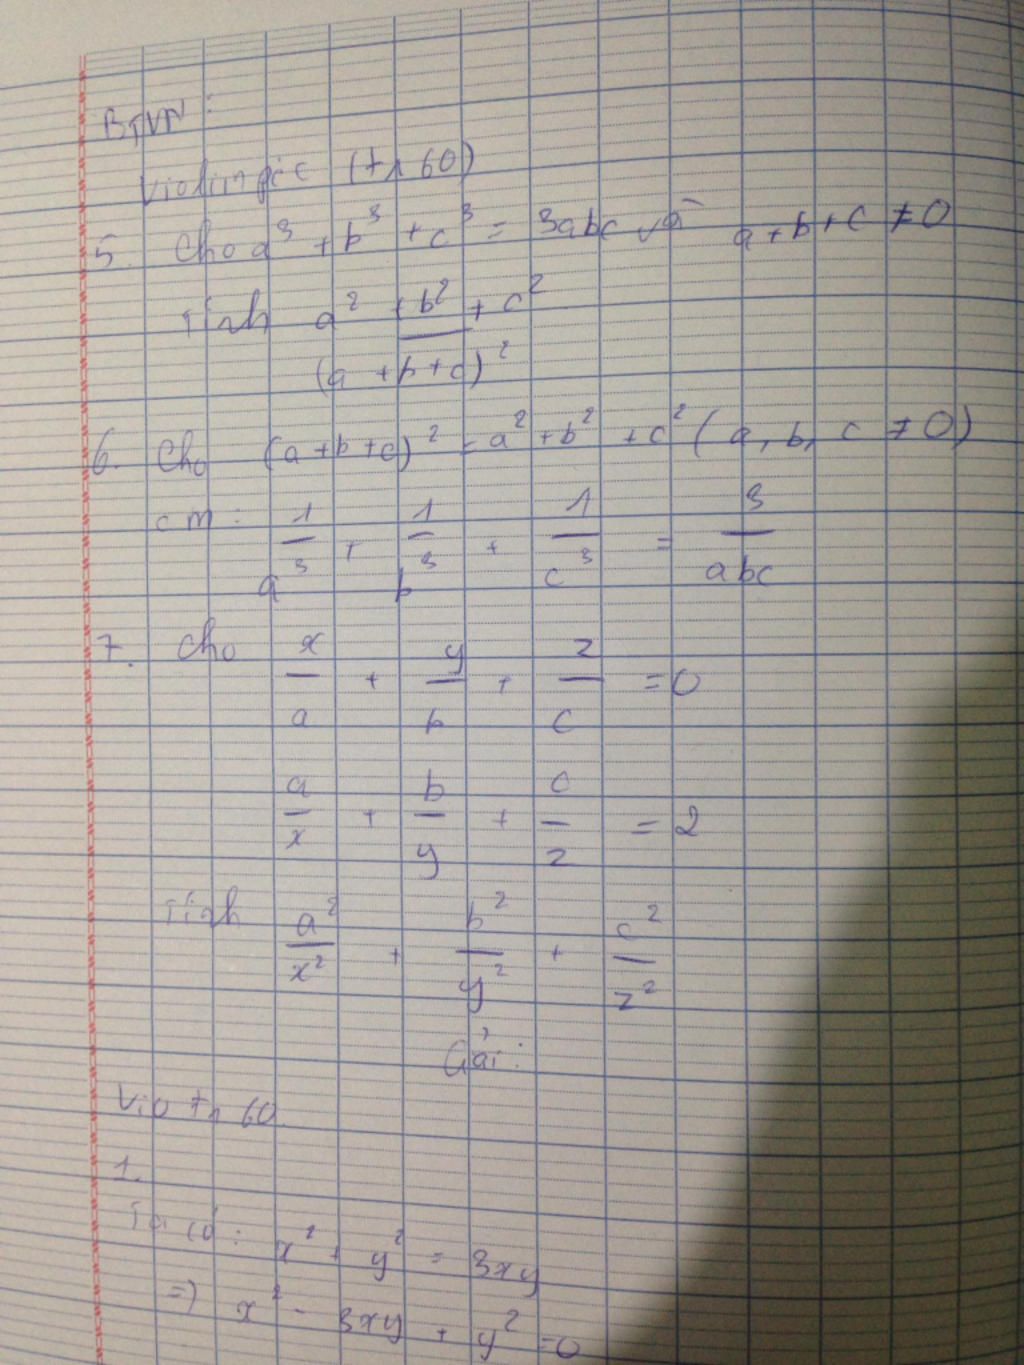 BTVN:
Violimpic (tr 60)
5. Cho a³ + b³ + c³ = 3abc và a + b + c ≠ 0
Tính (a² + b² + c²) / (a + b + c)²
6. Cho (a + b + c)² = a² + b² + c² (a, b, c ≠ 0)
cm: 1/a³ + 1/b³ + 1/c³ = 3/abc
7. Cho x/a + y/b + z/c = 0
a/x + b/y + c/z = 2
Tính a²/x² + b²/y² + c²/z²
Gải:
Vio tr 60
1.
Ta có: x² + y² = 3xy
=> x² - 3xy + y² = 0